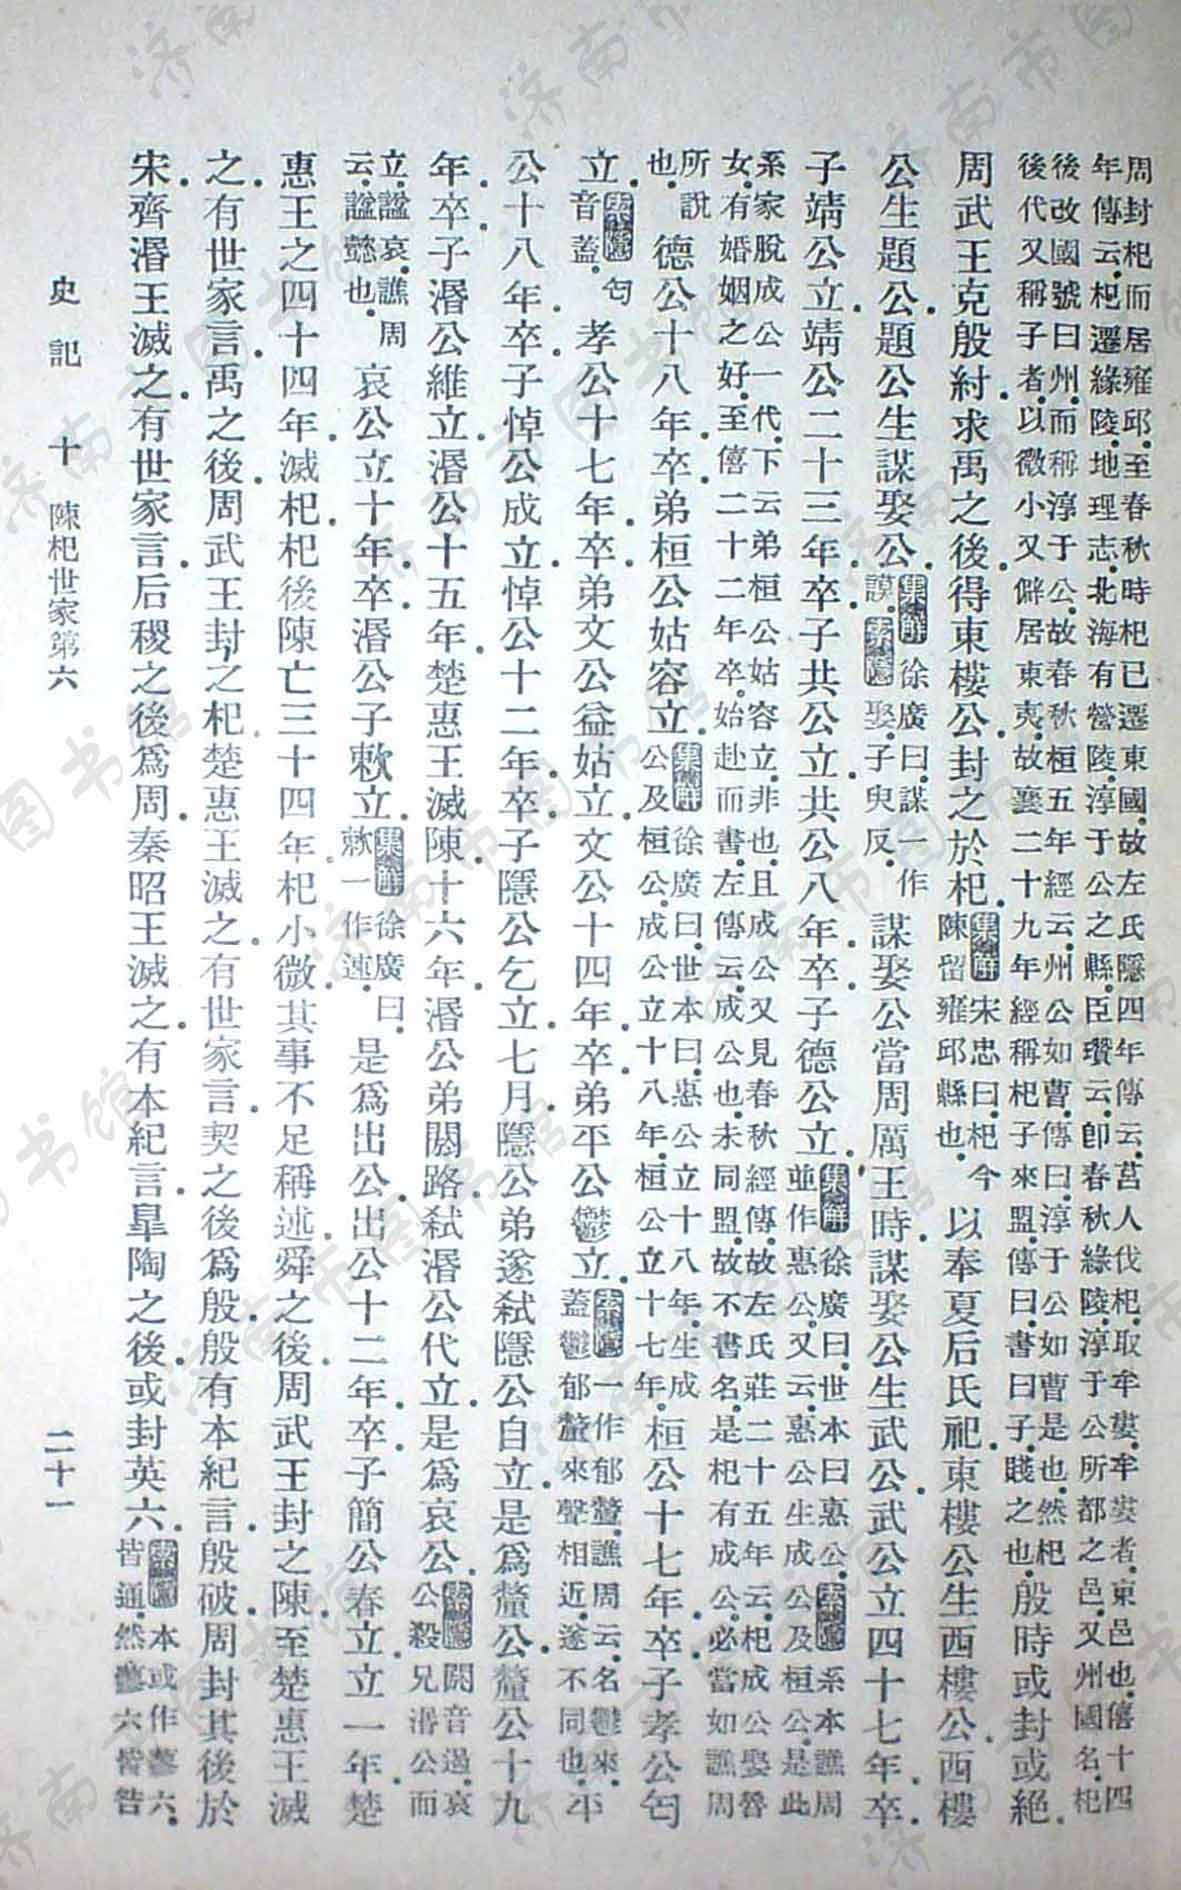 周封杞而居雍邱.至春秋時杞已遷東國.故左氏隱四年傳云.莒人伐杞.取牟婁.牟婁者.東邑也.僖十四
年傳云.杞遷緣陵.地理志.北海有營陵.淳于公之縣.臣瓚云.卽春秋緣陵.淳于公所都之邑.又州國名.杞
後改國號曰州.而稱淳于公.故春秋桓五年經云.州公如曹.傳曰.淳于公如曹是也.然杞
後代又稱子者.以微小又僻居東夷.故襄二十九年經稱杞子來盟.傳曰.書曰子.賤之也.殷時或封或絕.
周武王克殷紂.求禹之後.得東樓公.封之於杞.集解宋忠曰.杞今
陳留雍邱縣也.以奉夏后氏祀.東樓公生西樓公.西樓
公生題公.題公生謀娶公.集解徐廣曰.謀一作
謨.索隱娶.子臾反.謀娶公當周厲王時.謀娶公生武公.武公立四十七年.卒.
子靖公立.靖公二十三年.卒.子共公立.共公八年.卒.子德公立.集解徐廣曰.世本曰惠公.索隱系本譙周
並作惠公.又云.惠公生成公及桓公.是此
系家脫成公一代.下云弟桓公姑容立.非也.且成公又見春秋經傳.故左氏莊二十五年云.杞成公娶魯
女.有婚姻之好.至僖二十二年卒.始赴而書.左傳云.成公也.未同盟.故不書名.是杞有成公.必當如譙周
所說
也.德公十八年.卒.弟桓公姑容立.集解徐廣曰.世本曰.惠公立十八年.生成
公及桓公.成公立十八年.桓公立十七年.桓公十七年.卒.子孝公匄
立.索隱匄
音蓋.孝公十七年.卒.弟文公益姑立.文公十四年.卒.弟平公鬱立.索隱一作郁釐.譙周云.名鬱來.
蓋鬱郁釐來聲相近.遂不同也.平
公十八年.卒.子悼公成立.悼公十二年.卒.子隱公乞立.七月.隱公弟遂弒隱公自立.是爲釐公.釐公十九
年.卒.子湣公維立.湣公十五年.楚惠王滅陳.十六年.湣公弟閼路.弒湣公代立.是爲哀公.索隱閼音遏.哀
公殺兄湣公而
立.諡哀.譙周
云.諡懿也.哀公立十年.卒.湣公子敕立.集解徐廣曰.
敕一作速.是爲出公.出公十二年.卒.子簡公春立.立一年.楚
惠王之四十四年.滅杞.杞後陳亡三十四年.杞小微.其事不足稱述.舜之後.周武王封之陳.至楚惠王滅
之.有世家言.禹之後.周武王封之杞.楚惠王滅之.有世家言.契之後爲殷.殷有本紀言.殷破.周封其後於
宋.齊湣王滅之.有世家言.后稷之後爲周.秦昭王滅之.有本紀言.皋陶之後.或封英六.索隱本或作蓼六.
皆通.然蓼六皆咎
史記 十 陳杞世家第六 二十一